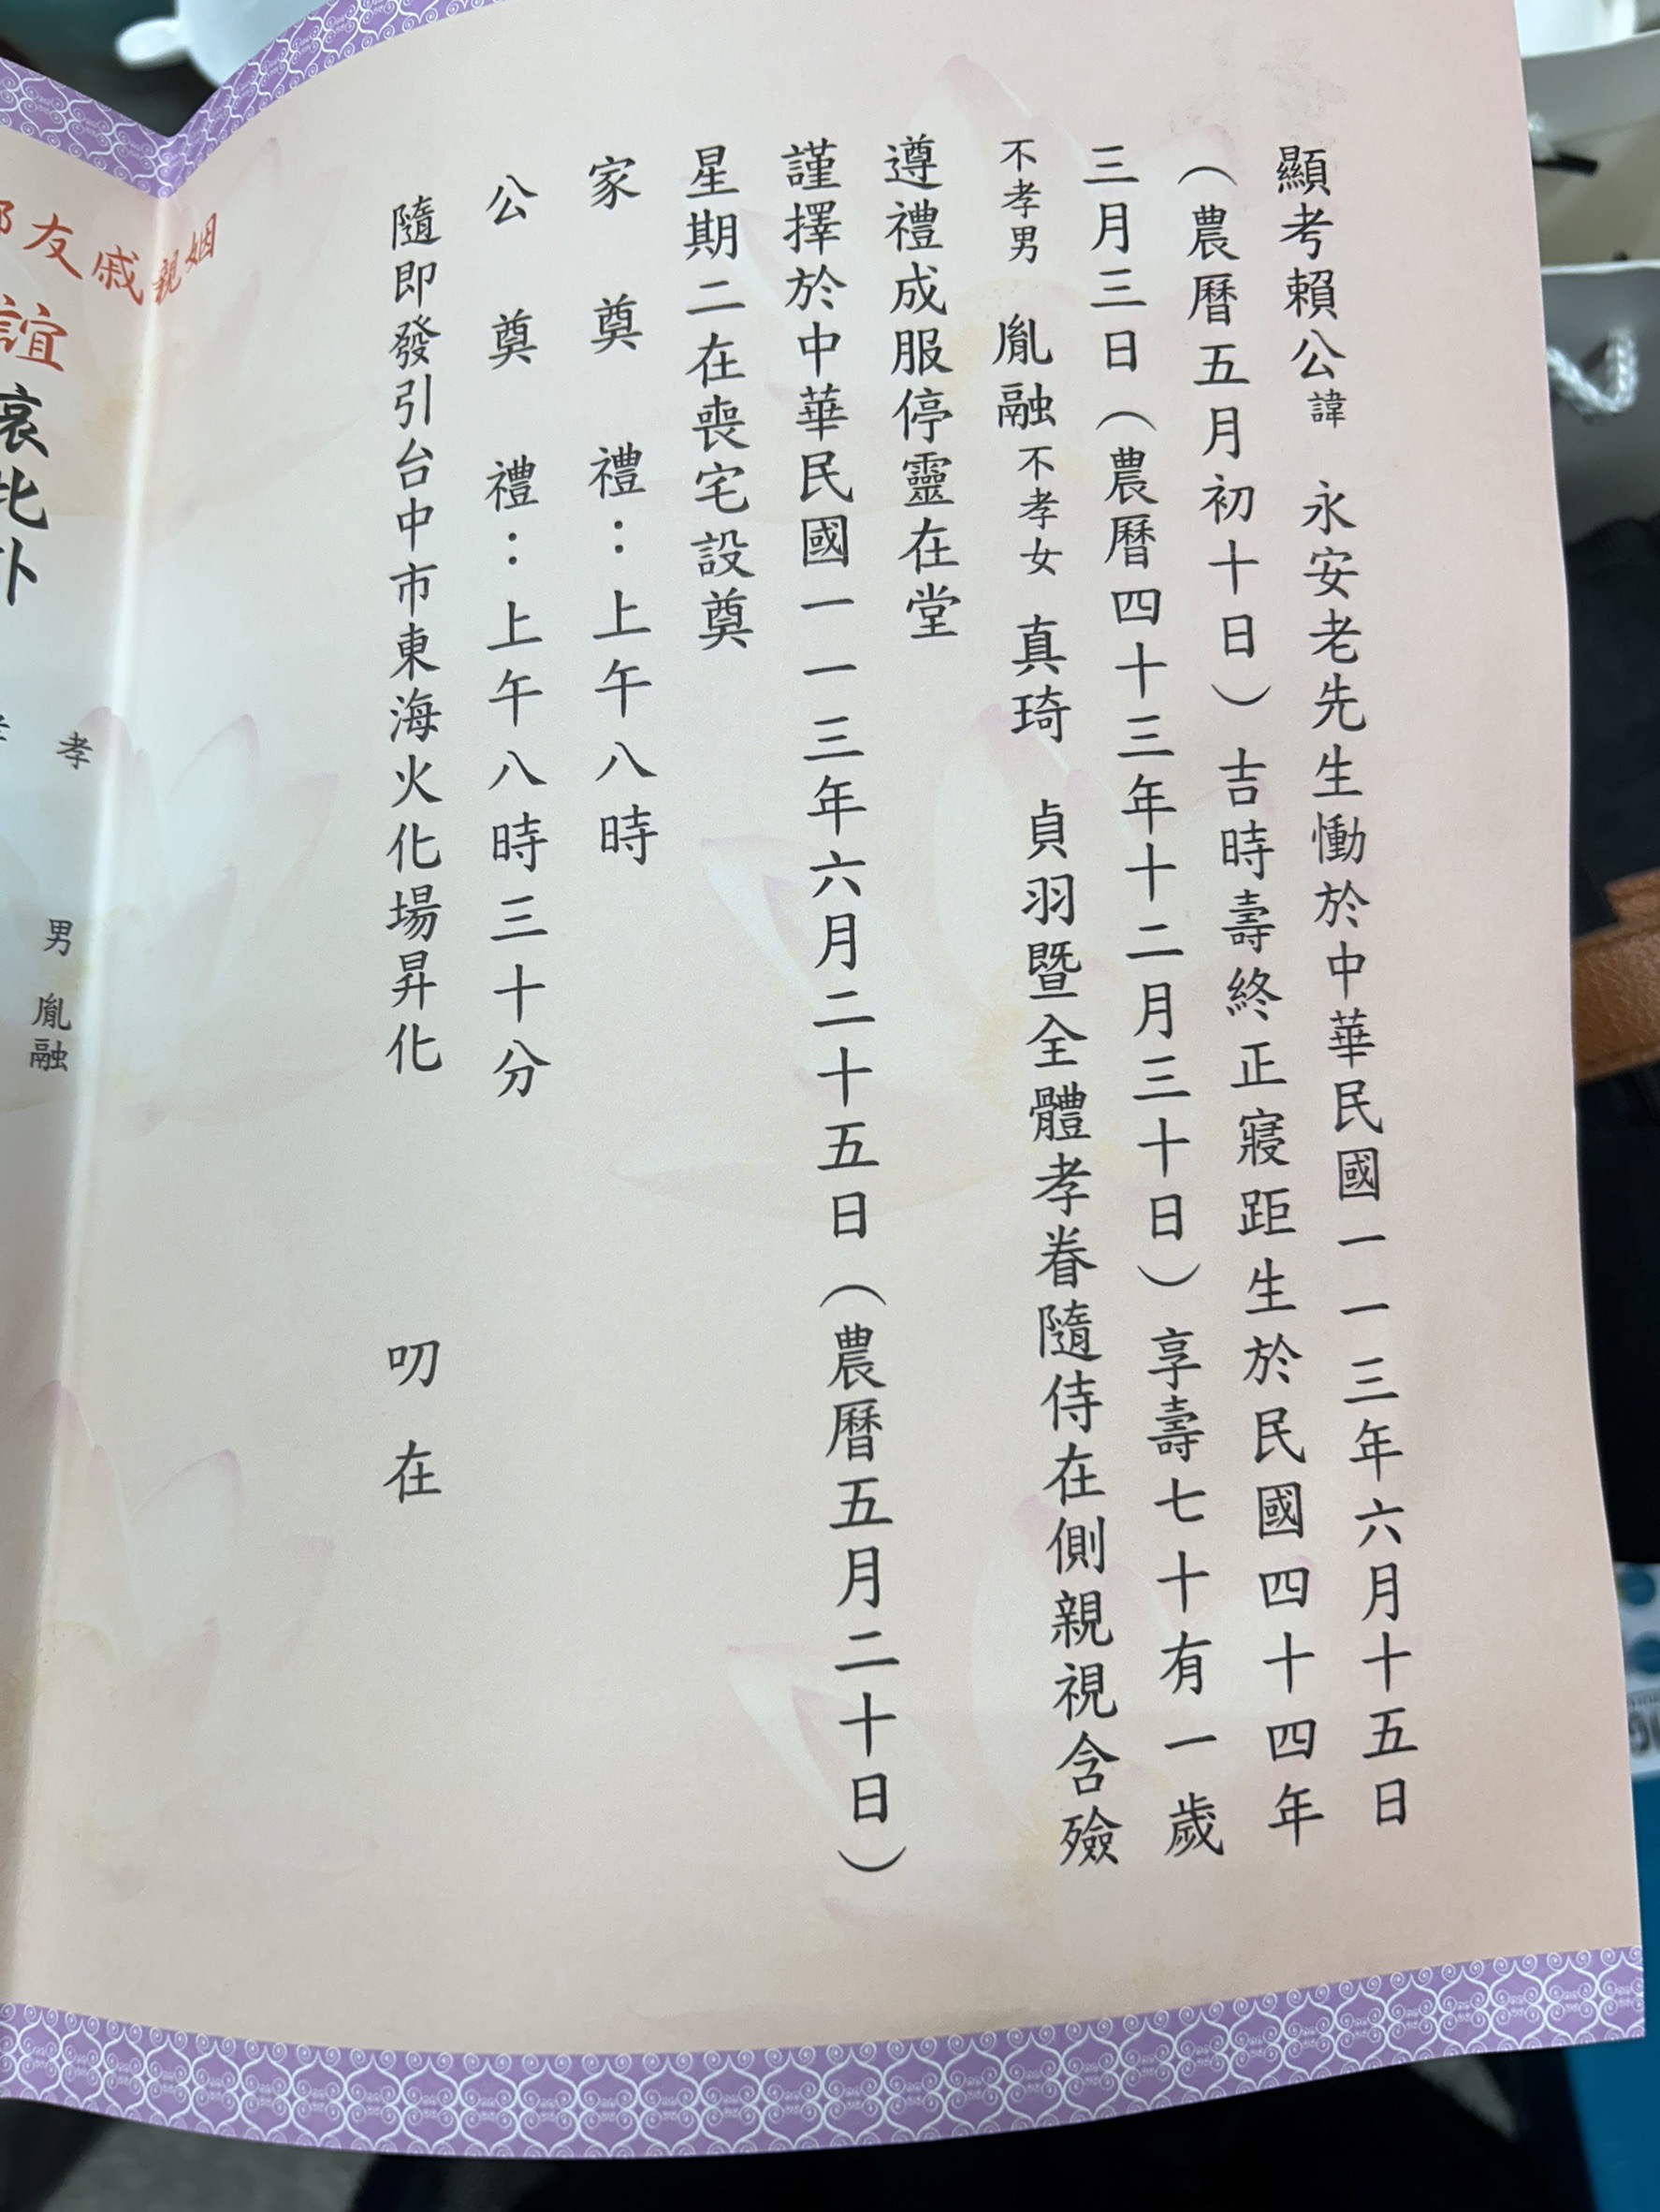 顯考賴公諱 永安老先生慟於中華民國一一三年六月十五日
（農曆五月初十日）吉時壽終正寢距生於民國四十四年
三月三日（農曆四十三年十二月三十日）享壽七十有一歲
不孝男 胤融 不孝女 真琦 貞羽暨全體孝眷隨侍在側親視含殮
遵禮成服停靈在堂
謹擇於中華民國一一三年六月二十五日（農曆五月二十日）
星期二在喪宅設奠
家奠禮：上午八時
公奠禮：上午八時三十分
隨即發引台中市東海火化場昇化 叨在
姻親戚友
誼 哀此訃
孝
男 胤融